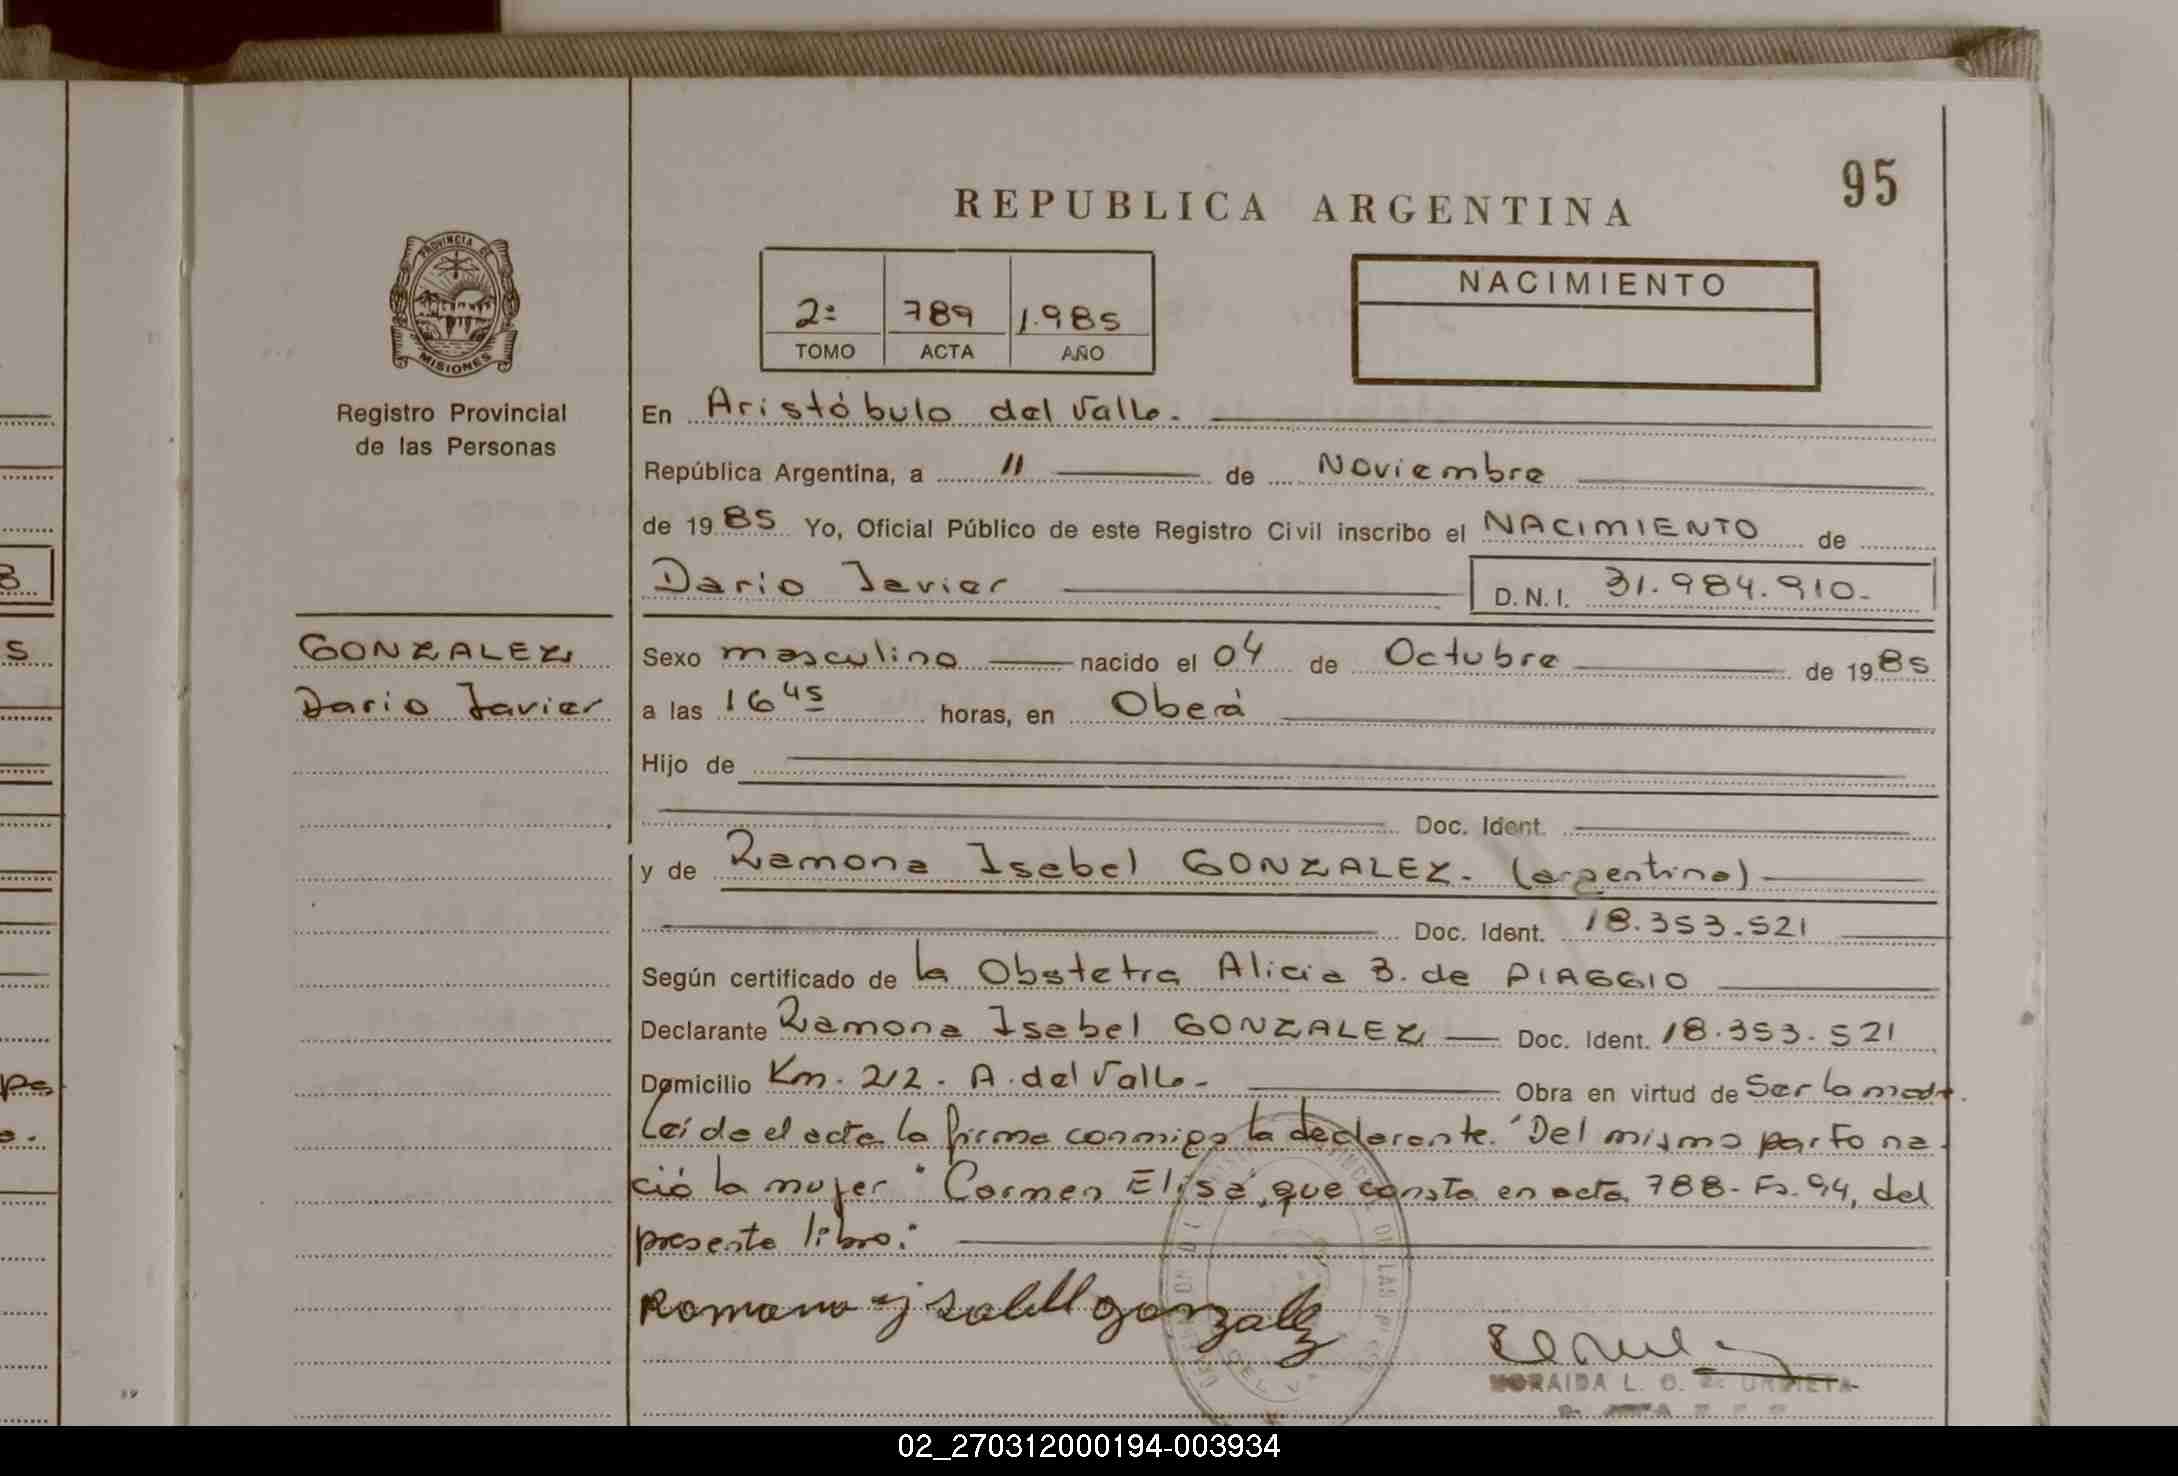 95
REPUBLICA ARGENTINA
PROVINCIA DE
MISIONES
Registro Provincial
de las Personas
2= 789 1.985
TOMO ACTA AÑO
NACIMIENTO
En Aristóbulo del Valle.
República Argentina, a 11 de Noviembre
de 1985 Yo, Oficial Público de este Registro Civil inscribo el NACIMIENTO de
Dario Javier D.N.I. 31.984.910-
GONZALEZ
Dario Javier
Sexo masculino nacido el 04 de Octubre de 1985
a las 16 45 horas, en Oberá
Hijo de
Doc. Ident.
y de Ramona Isabel GONZALEZ. (argentina)
Doc. Ident. 18.353.521
Según certificado de la Obstetra Alicia B. de PIAGGIO
Declarante Ramona Isabel GONZALEZ Doc. Ident. 18.353.521
Domicilio Km. 212. A. del Valle- Obra en virtud de Ser la
Leída el acta la firma conmigo la declarante. "Del mismo parto na
ció la mujer "Carmen Elisa", que consta en acta 788- Fs. 94, del
presente libro:"
Ramona Isabel gonzalez
MORAIDA L. O. DE URBIETA
02_270312000194-003934